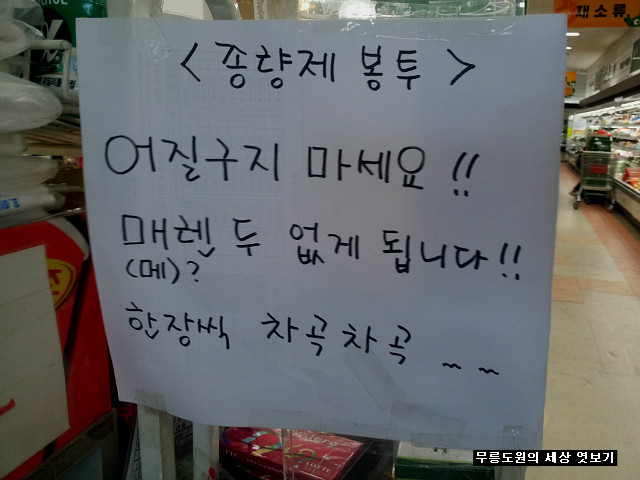 채소류
<종량제 봉투>
어질구지 마세요!!
매렌 두 없게 됩니다!!
(메)?
한장씩 차곡차곡 ~~
무릉도원의 세상 엿보기